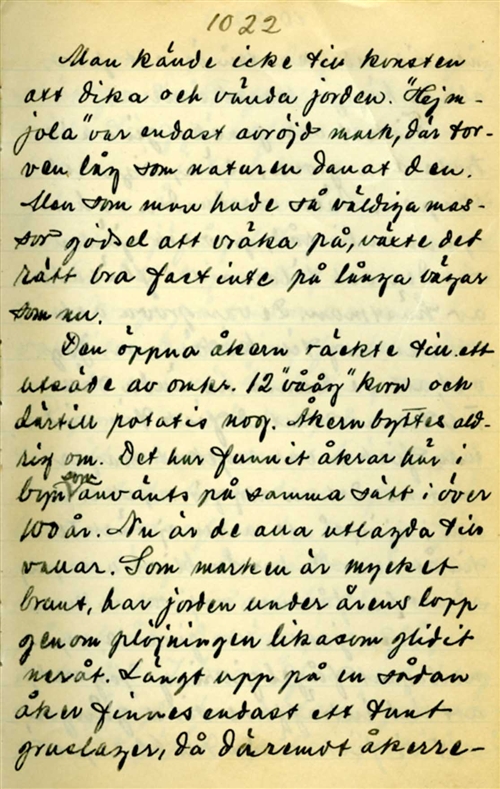 1022
Man kände icke till konsten
att dika och vända jorden. "Hejm-
jola" var endast avröjd mark, där tor-
ven låg som naturen danat den.
Men som man hade så väldiga mas-
sor gödsel att vräka på, växte det
rätt bra fast inte på långa vägar
som nu.
Den öppna åkern räckte till ett
utsäde av omkr. 12 "våårg" korn och
därtill potatis nog. Åkern byttes ald-
rig om. Det har funnit åkrar här i
byn som använts på samma sätt i över
100 år. Nu är de alla utlagda till
vallar. Som marken är mycket
brant, har jorden under årens lopp
genom plöjningen likasom glidit
neråt. Längt upp på en sådan
åker finnes endast ett tunt
gruslager, då däremot åkerre-